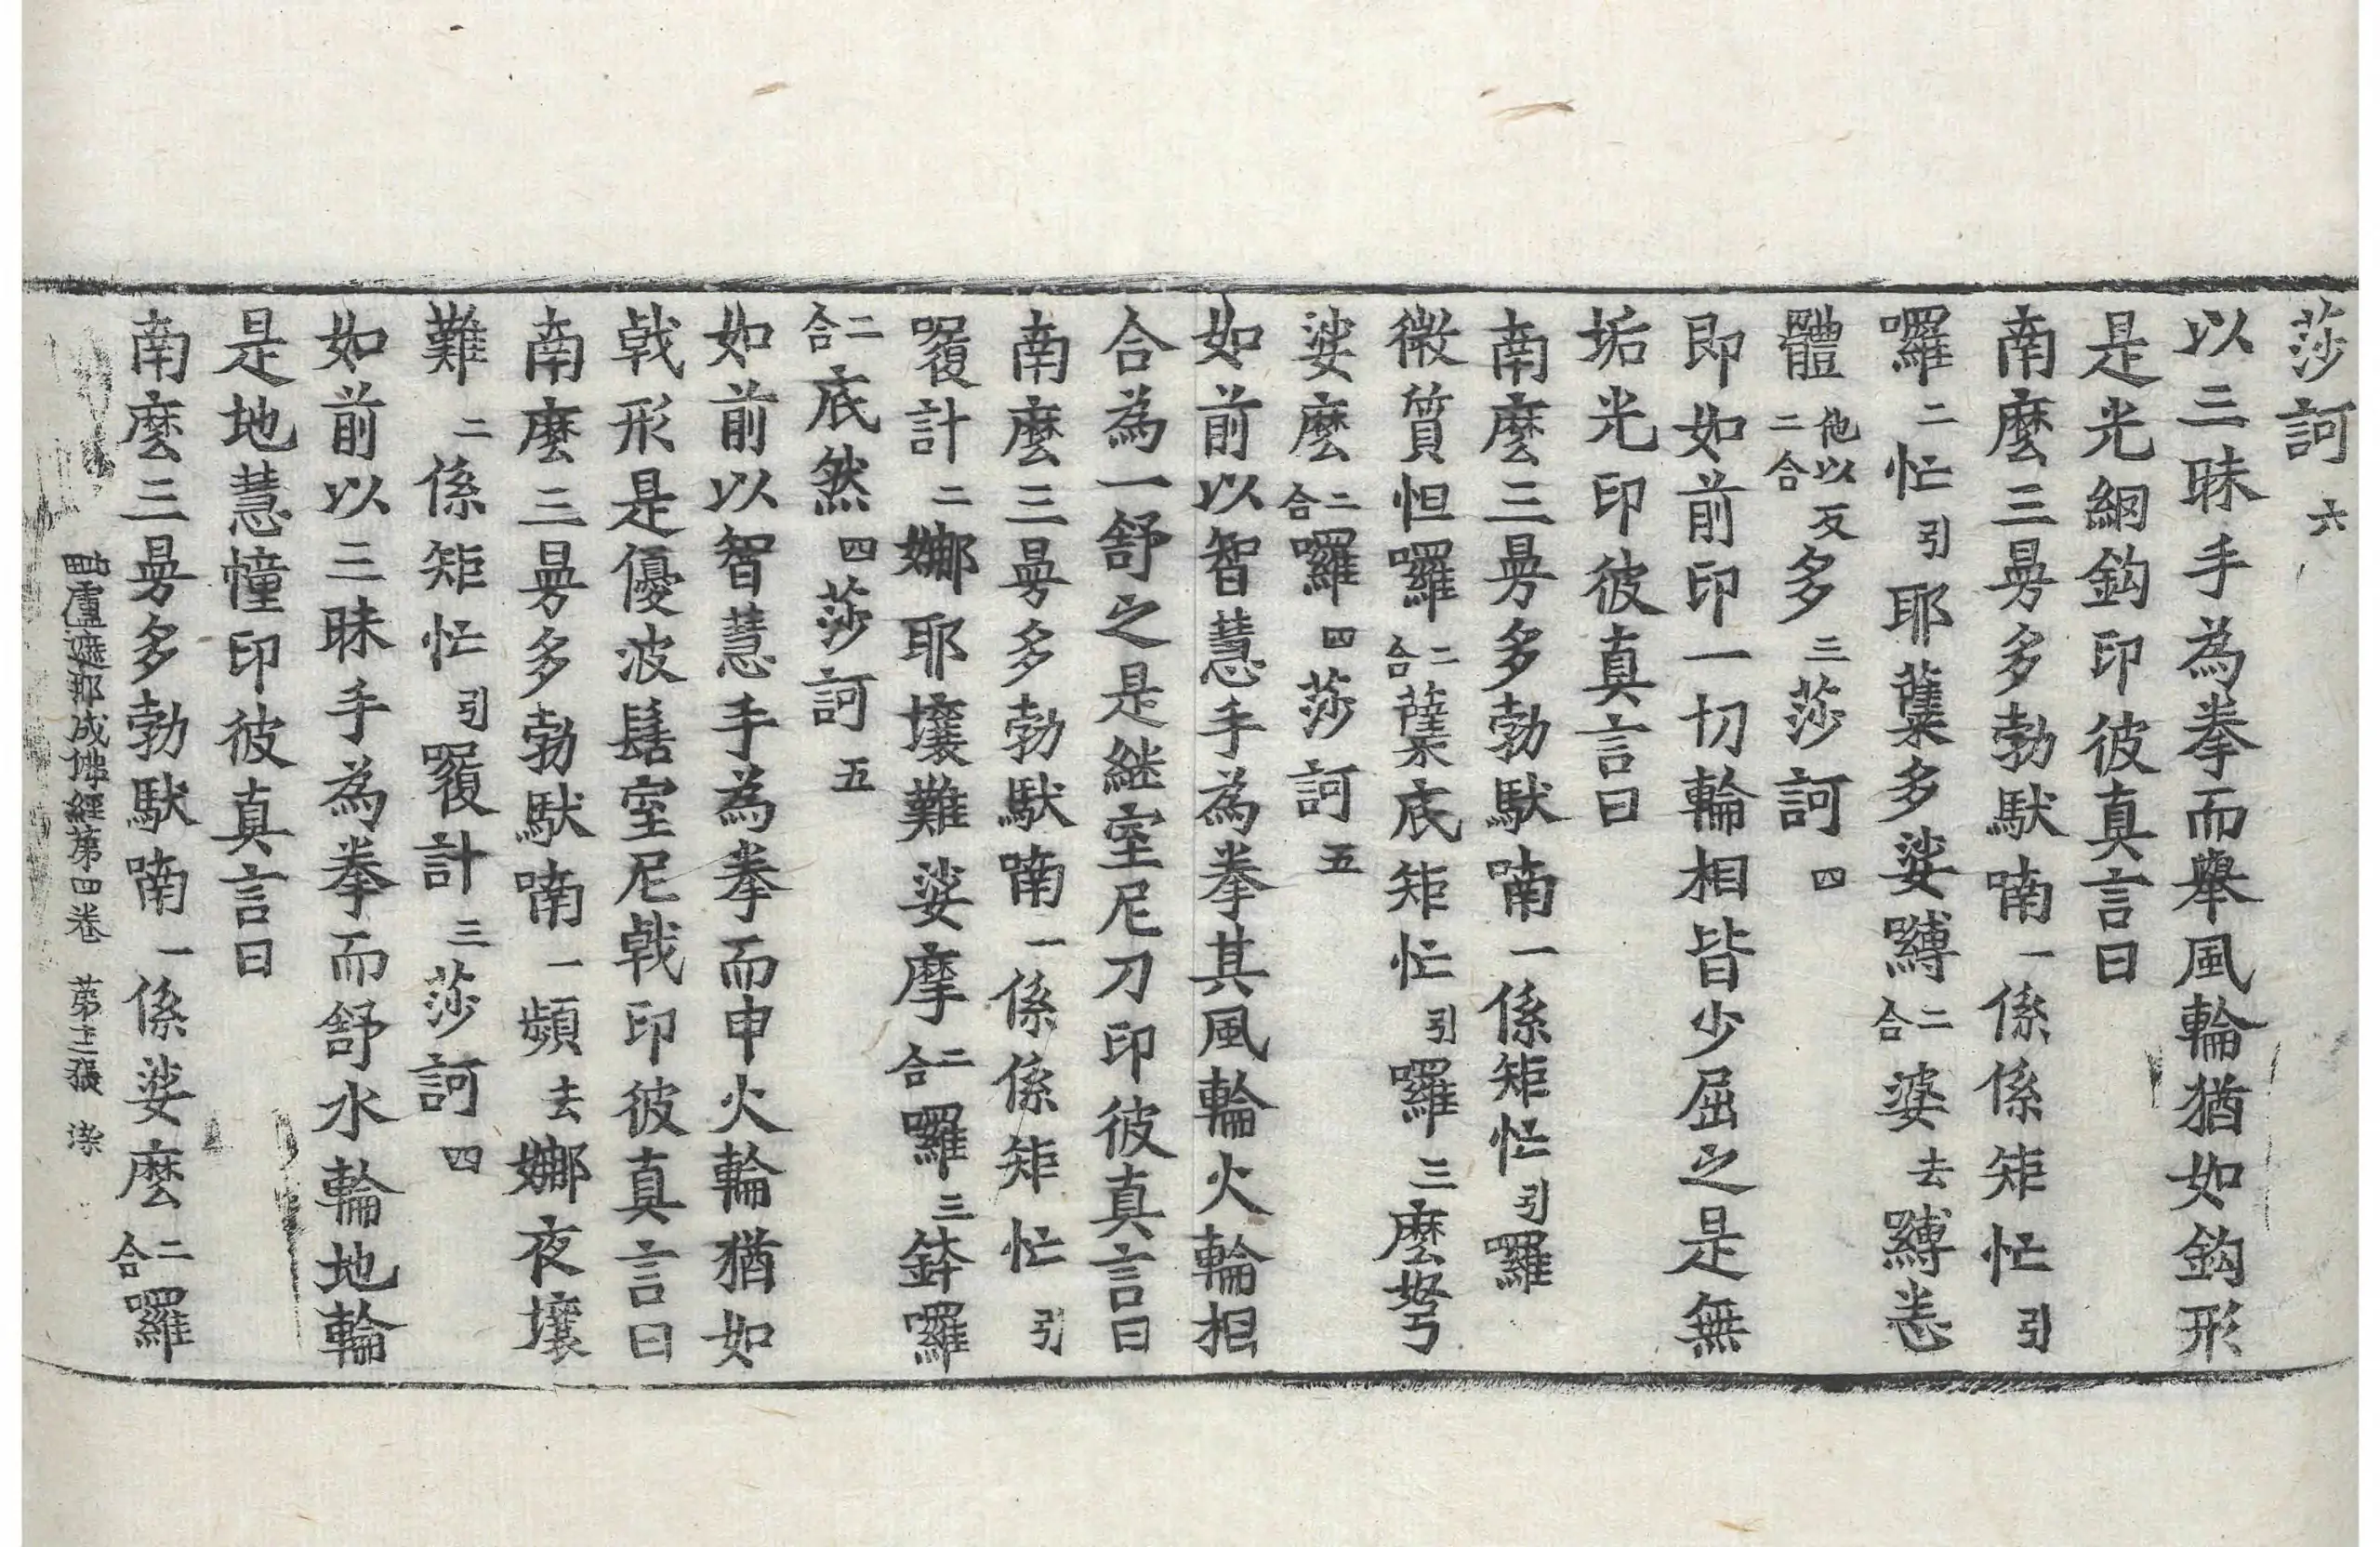 莎訶六
以三昧手為拳而舉風輪猶如鈎形
是光網鈎印彼真言曰
南麼三曼多勃馱喃一係係矩忙引
囉二忙引耶蘖多娑嚩二合婆去嚩悉
體他以反二合多三莎訶四
即如前印一切輪相皆少屈之是無
垢光印彼真言曰
南麼三曼多勃馱喃一係矩忙引囉
微質怛囉二合蘖底矩忙引囉三麼弩
娑麼二合囉四莎訶五
如前以智慧手為拳其風輪火輪相
合為一舒之是継室尼刀印彼真言曰
南麼三曼多勃馱喃一係係矩忙引
囉計二娜耶壤難娑摩二合囉三鉢囉
二合底然四莎訶五
如前以智慧手為拳而申火輪猶如
戟形是優波髻室尼戟印彼真言曰
南麼三曼多勃馱喃一頻去娜夜壤
難二係矩忙引囉計三莎訶四
如前以三昧手為拳而舒水輪地輪
是地慧幢印彼真言曰
南麼三曼多勃馱喃一係娑麼二合囉
毗盧遮那成佛經第四卷 第十三張 染